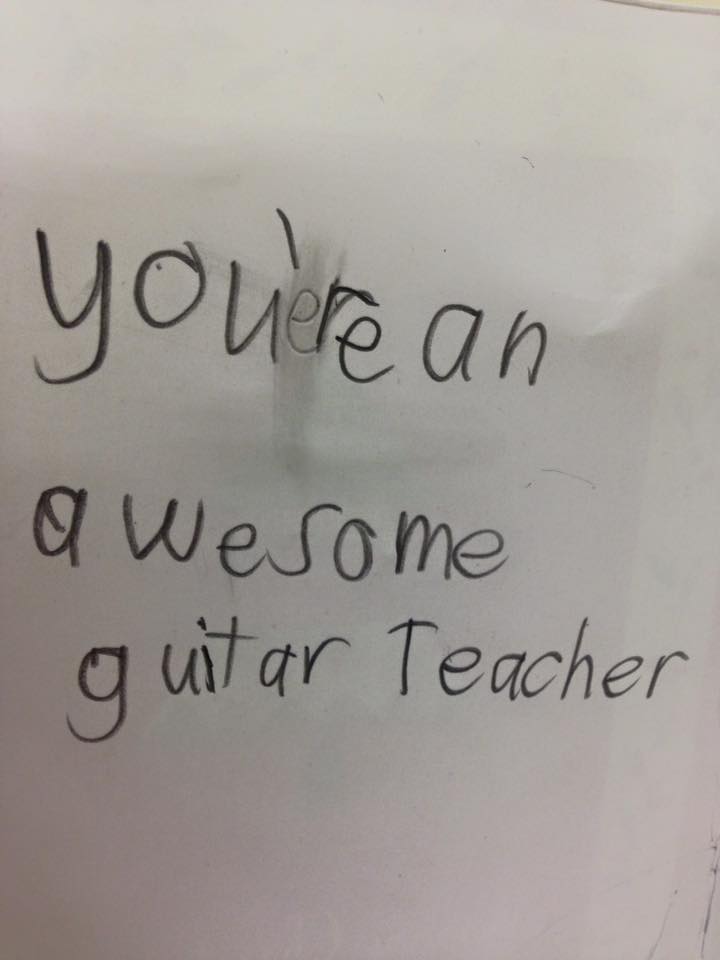 you're an
awesome
guitar Teacher